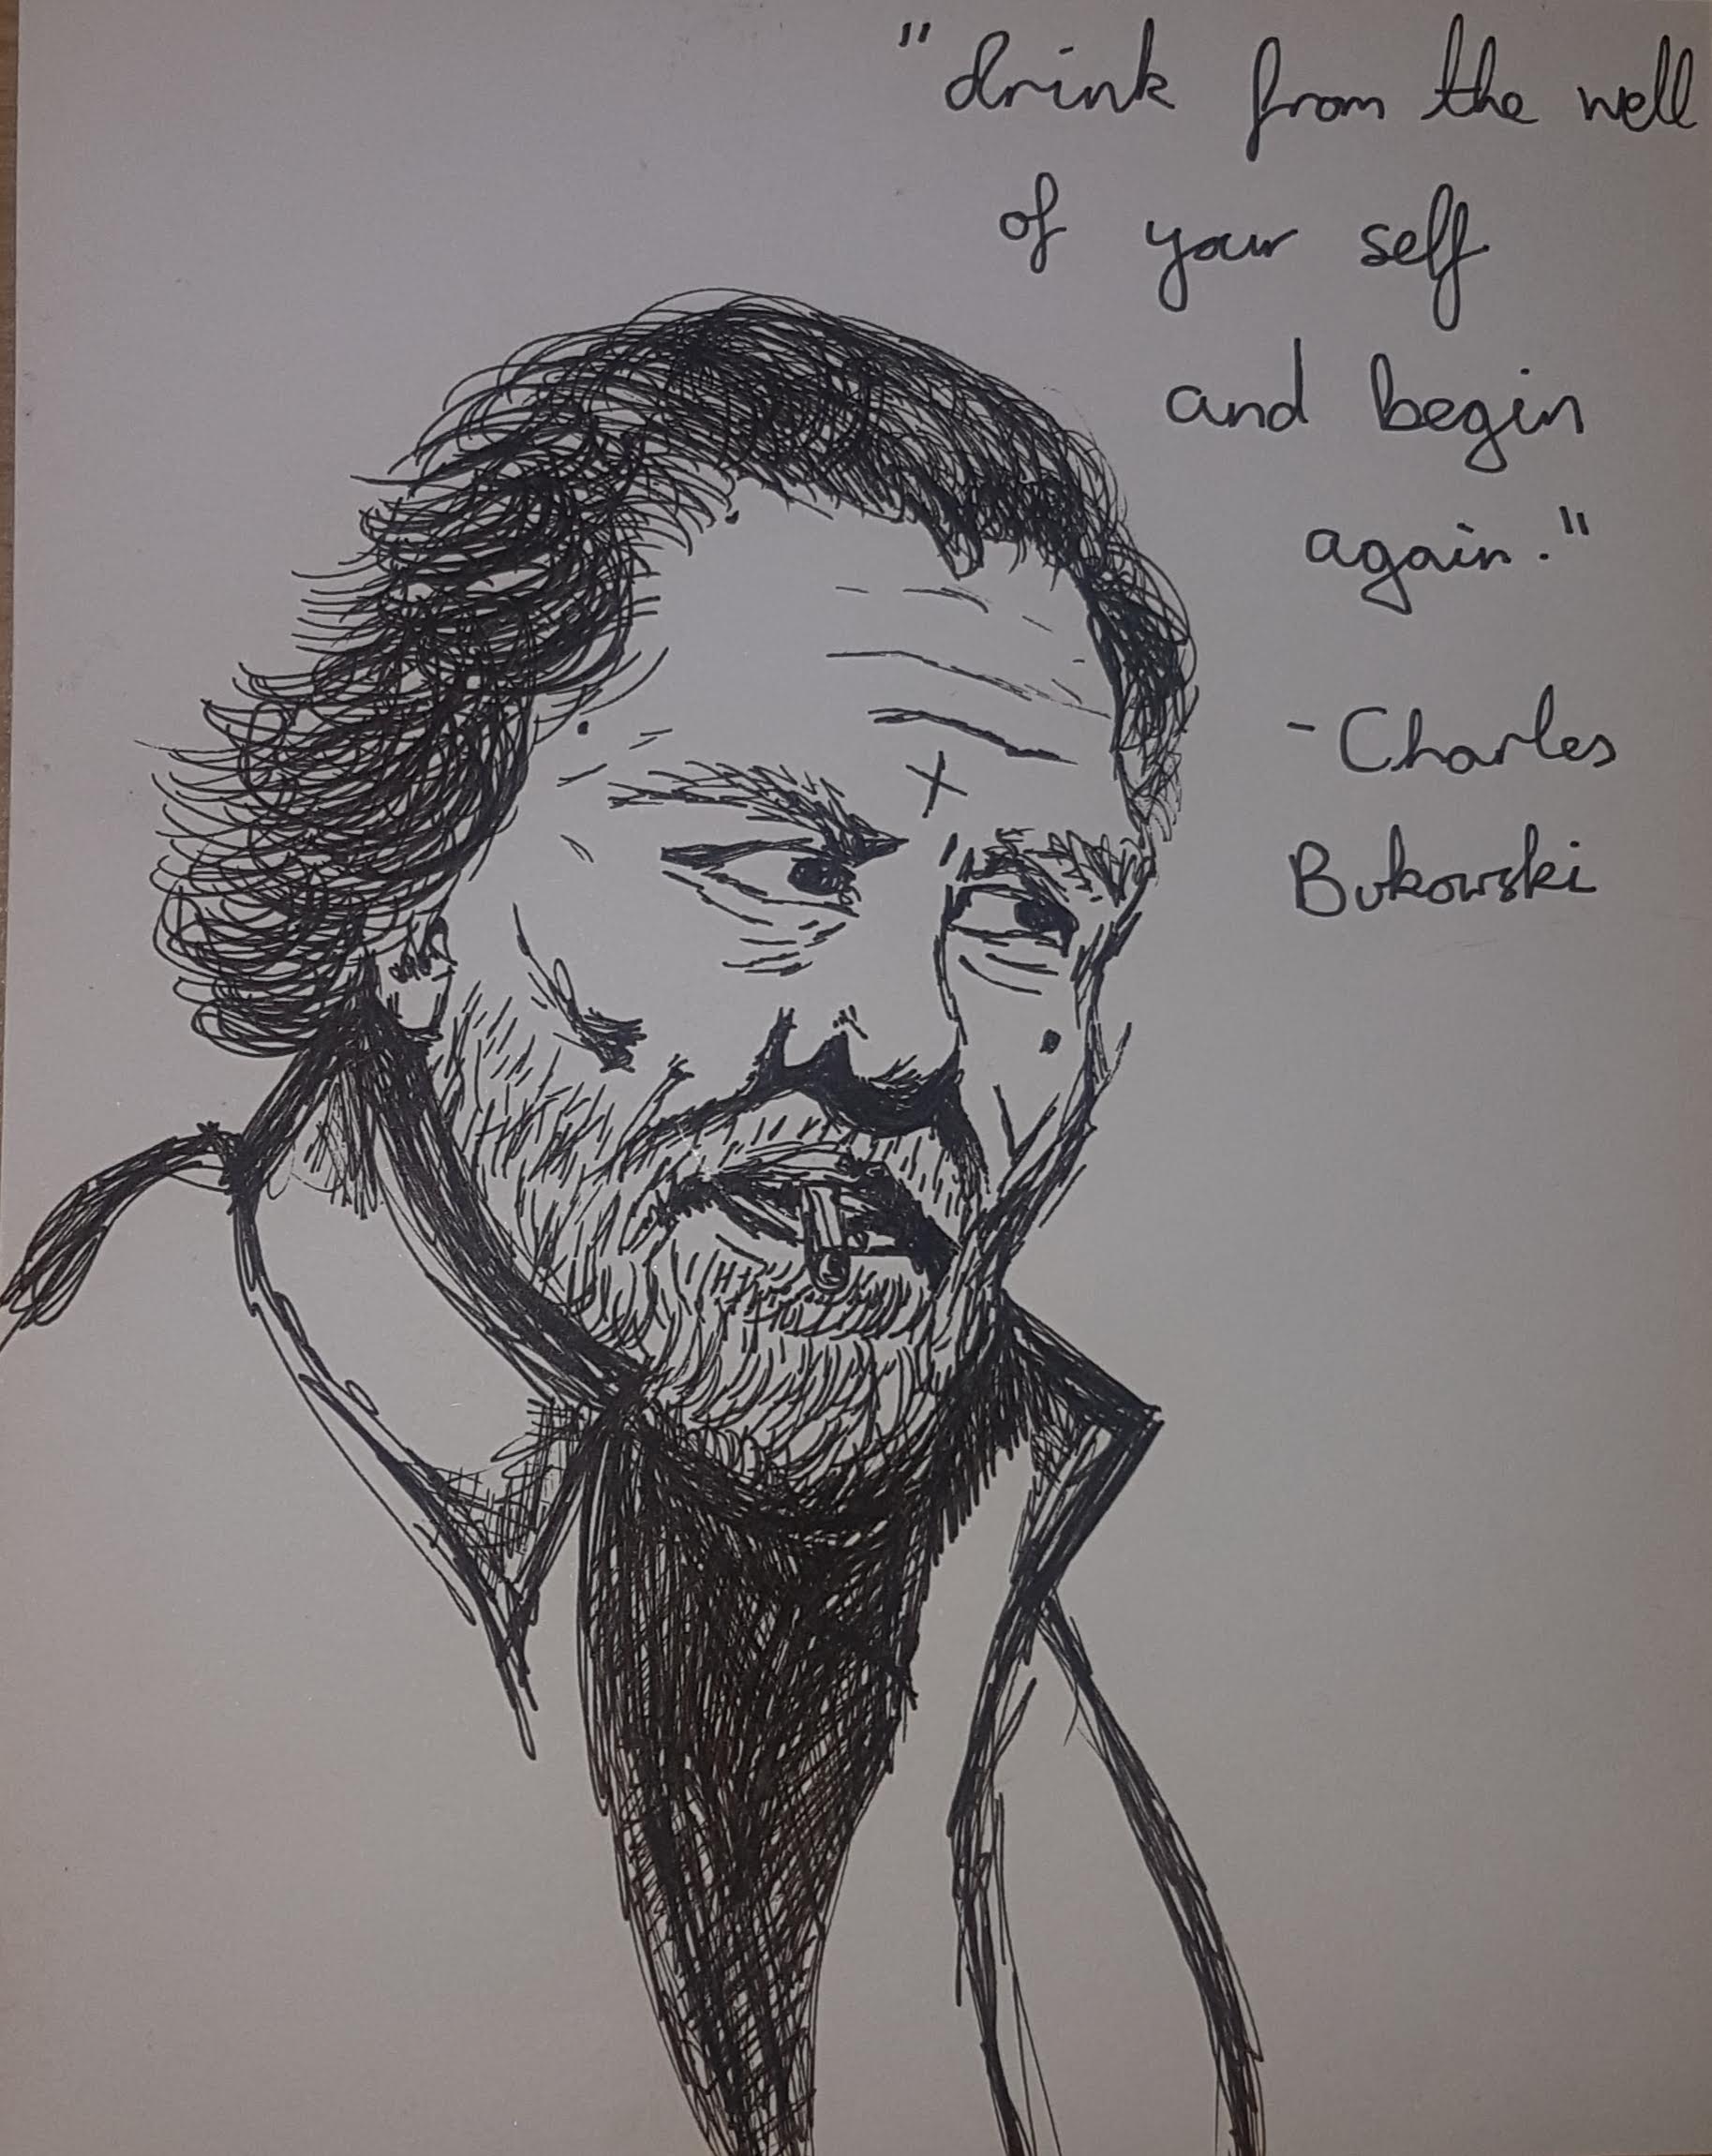 "drink from the well
of your self
and begin
again."
- Charles
Bukowski